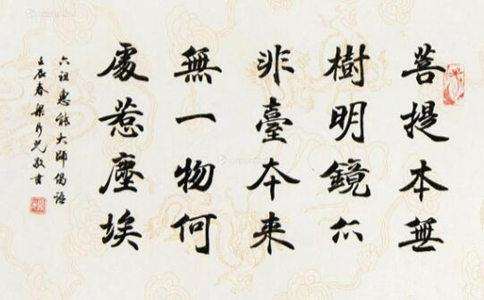 菩提本無
樹明鏡亦
非臺夲來
無一物何
處惹塵埃
六祖惠能大師偈語
壬辰春梁敬書